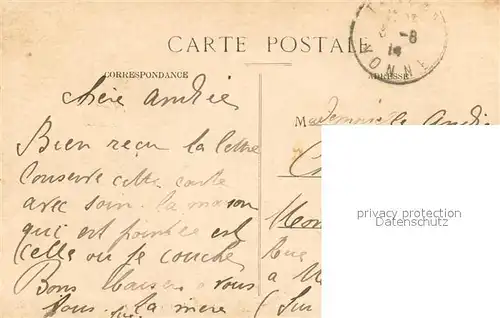 CARTE POSTALE
CORRESPONDANCE
ADRESSE
-8
14
YONNE
chère Andrée
Bien reçu la lettre
Conserve cette carte
avec soin. la maison
qui est pointée est
celle ou je couche
Bons baisers a vous
tous. la mère
Mademoiselle Andrée
Mon
Rue
a
(Sur
privacy protection
Datenschutz